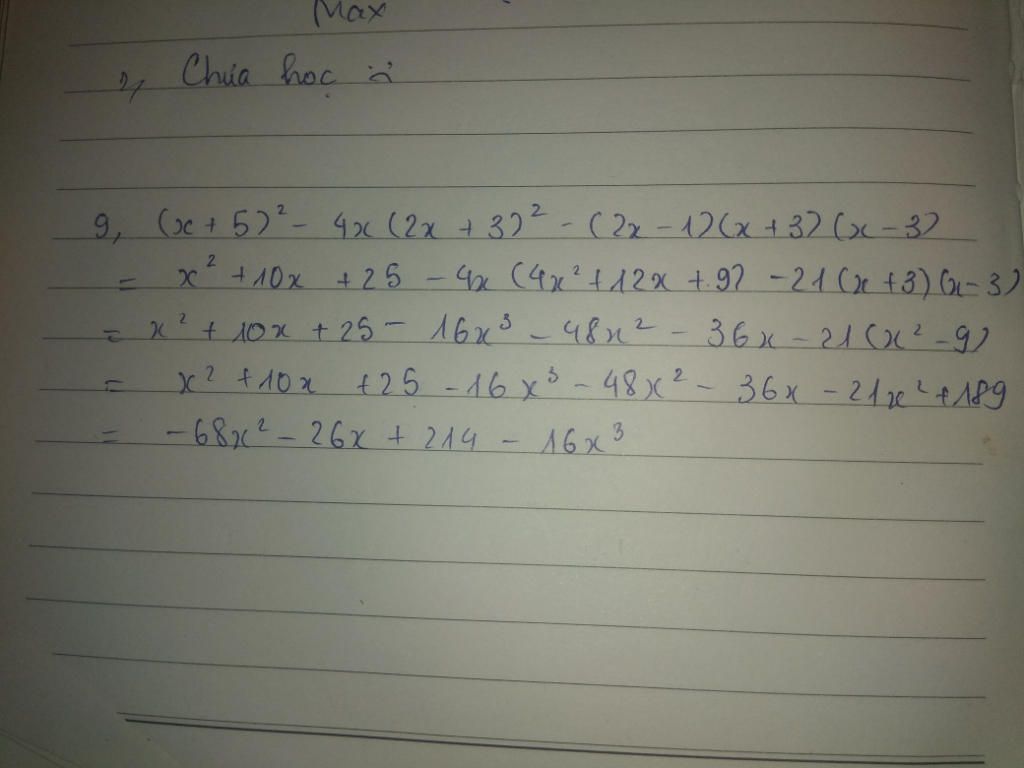 Max
2, Chưa học ..
9, (x + 5)² - 4x (2x + 3)² - (2x - 1)(x + 3) (x - 3)
= x² + 10x + 25 - 4x (4x² + 12x + 9) - 21 (x + 3) (x - 3)
= x² + 10x + 25 - 16x³ - 48x² - 36x - 21 (x² - 9)
= x² + 10x + 25 - 16x³ - 48x² - 36x - 21x² + 189
= - 68x² - 26x + 214 - 16x³